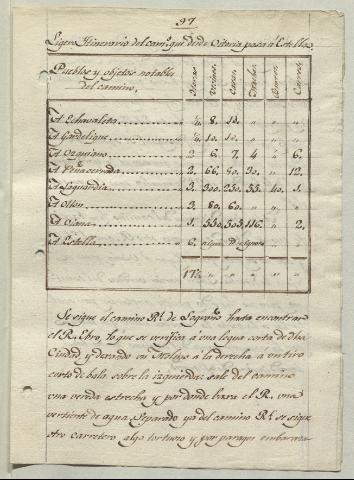 97
Ligero Itinerario del cam.º que desde Vitoria pasa á Estella.
Pueblos y objetos notables del camino. Horas. Vecinos. Casas. Barcos. Carros.
A Echavaleta 8. 10. " " "
A Gardelique " 10. 10. " " "
A Ozquiano 2 6. 7. 4 " 6.
A Peñacerrada 2. 66. 80. 30. " 12.
A Laguardia 3. 300. 230. 55. 40. 1.
A Ollon 3. 80. 60. " " "
A Viana 1. 550. 503. 116. " 2.
A Estella 6. " " "
17½ " " " " "
Se sigue el camino R.l de Logroño hasta encontrar
el R. Ebro, lo que se verifica á una legua corta de dha
Ciudad y dexando un Molino á la derecha a un tiro
corto de bala sobre la izquierda: sale del camino
una vereda estrecha y por donde baxa el R. una
vertiente de agua. Separado ya del camino R.l se sigue
otro carretero algo tortuoso y por parages embaraza